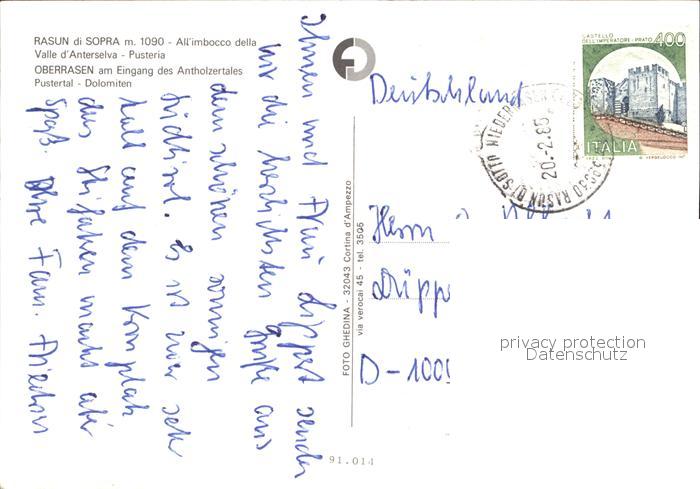 RASUN di SOPRA m. 1090 - All'imbocco della
Valle d'Anterselva - Pusteria
OBERRASEN am Eingang des Antholzertales
Pustertal - Dolomiten
Ihnen und Frau Lippert senden
wir die herzlichsten Grüße aus
dem schönen sonnigen
Südtirol. Es ist zwar sehr
kalt auf dem Kronplatz
das Skifahren macht aber
Spaß. Ihre Fam.
FOTO GHEDINA - 32043 Cortina d'Ampezzo
via verocai 45 - tel. 3505
91.014
Deutschland
CASTELLO
DELL'IMPERATORE - PRATO
400
ITALIA
20.-2.85
RASUN DI SOTTO
Herrn
D-100
privacy protection
Datenschutz